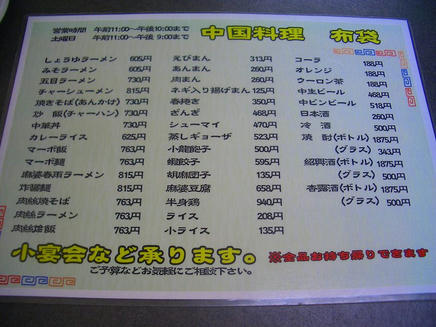 営業時間 午前11:00～午後10:00まで
土曜日 午前11:00～午後 9:00まで
中国料理 布袋
しょうゆラーメン 605円
みそラーメン 605円
五目ラーメン 730円
チャーシューメン 815円
焼きそば(あんかけ) 730円
炒 飯(チャーハン) 730円
中華丼 730円
カレーライス 625円
マーボ飯 763円
マーボ麺 763円
麻婆春雨ラーメン 815円
炸醤麺 815円
肉絲焼そば 763円
肉絲ラーメン 763円
肉絲燴飯 763円
えびまん 313円
あんまん 260円
肉まん 260円
ネギ入り揚げまん 125円
春捲き 350円
ざんぎ 468円
シューマイ 470円
蒸しギョーザ 523円
小龍餃子 500円
蝦餃子 595円
胡麻団子 135円
麻婆豆腐 658円
半身鶏 940円
ライス 208円
小ライス 135円
コーラ 188円
オレンジ 188円
ウーロン茶 188円
中生ビール 468円
中ビンビール 518円
日本酒 260円
冷 酒 500円
焼 酎(ボトル) 1875円
(グラス) 343円
紹興酒(ボトル) 1875円
(グラス) 500円
杏露酒(ボトル) 1875円
(グラス) 500円
小宴会など承ります。
ご予算などお気軽にご相談下さい。
※全品お持ち帰りできます